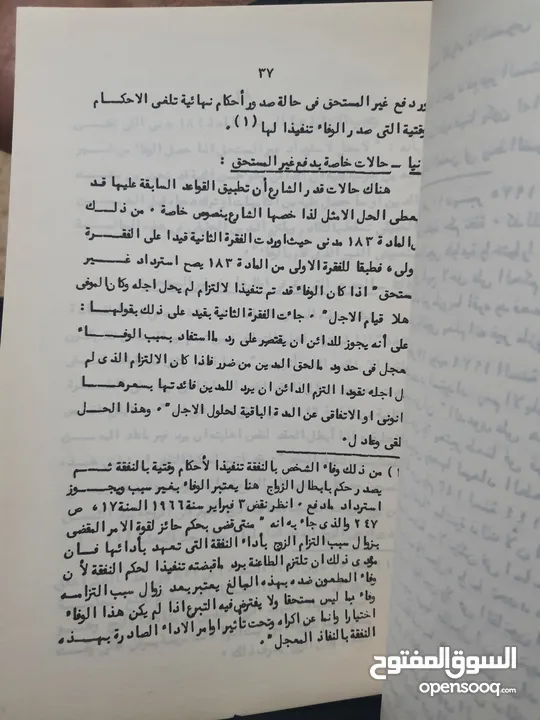 ٣٧
ورد دفع غير المستحق فى حالة صدور أحكام نهائية تلغى الاحكام
وقتية التى صدر الوفاء تنفيذا لها (١) .
نيا – حالات خاصة بدفع غير المستحق :
هناك حالات قدر الشارع أن تطبيق القواعد السابقة عليها قد
يعطى الحل الامثل لذا خصها الشارع بنصوص خاصة . من ذلك
المادة ١٨٣ مدنى حيث اوردت الفقرة الثانية قيدا على الفقرة
ولى ، فطبقا للفقرة الاولى من المادة ١٨٣ يصح استرداد غير
ستحق " اذا كان الوفاء قد تم تنفيذا لالتزام لم يحل اجله وكان الموفى
هلا قيام الاجل " . جاءت الفقرة الثانية بقيد على ذلك بقولها :
على أنه يجوز للدائن ان يقتصر على رد ما استفاد بسبب الوفاء
معجل فى حدود ما لحق المدين من ضرر فاذا كان الالتزام الذى لم
ل اجله نقودا التزم الدائن ان يرد للمدين فائدتها بسعرها
انونى او الاتفاقى عن المدة الباقية لحلول الاجل " . وهذا الحل
لقى وعادل .
١ ) من ذلك وفاء الشخص بالنفقة تنفيذا لأحكام وقتية بالنفقة ثم
يصدر حكم بابطال الزواج هنا يعتبر الوفاء بغير سبب ويجوز
استرداد ما دفع . انظر نقض ٣ فبراير سنة ١٩٦٦ السنة ١٧ ، ص
٢٤٧ والذى جاء به انه " متى قضى بحكم حائز لقوة الامر المقضى
بزوال سبب التزام الزوج بأداء النفقة التى تعهد بأدائها فان
مؤدى ذلك ان تلتزم الطاعنة برد ما قبضته تنفيذا لحكم النفقة لأن
وفاء المطعون ضده بهذه المبالغ يعتبر بعد زوال سبب التزامه
وفاء بما ليس مستحقا ولا يفترض فيه التبرع اذا لم يكن هذا الوفاء
اختيارا وانما عن اكراه وتحت تأثير اوامر الاداء الصادرة بهذه
النفقة بالنفاذ المعجل " .
السوق المفتوح
opensooq.com